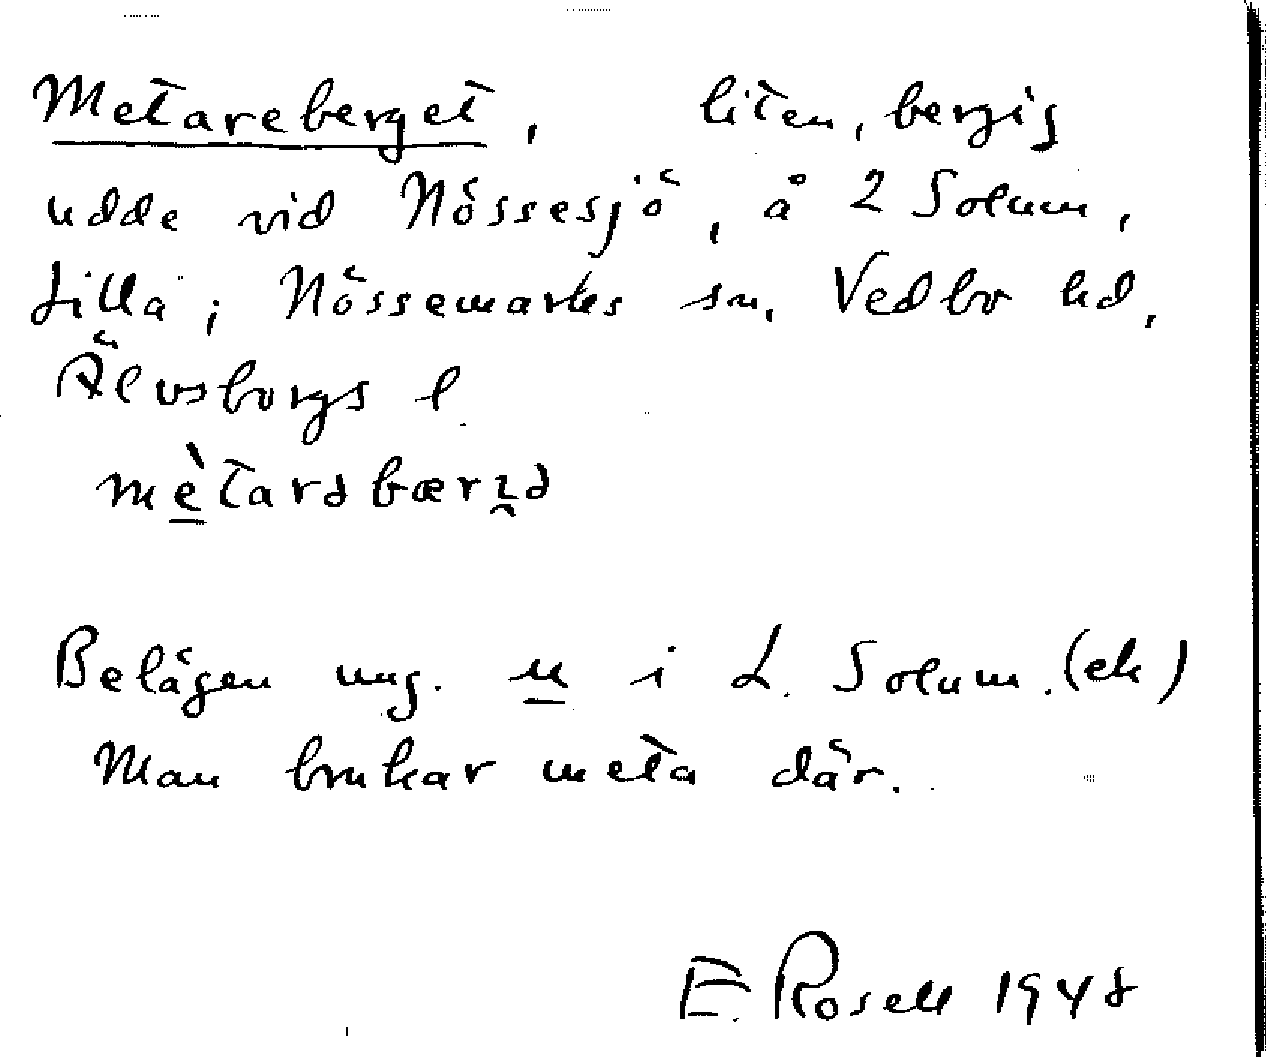 Metareberget, liten, bergig
udde vid Nössesjö, å 2 Solum,
Lilla; Nössemarks sn, Vedbo hd,
Älvsborgs l.
Belägen ung. m i L. Solum. (ek)
Man brukar meta där.
E. Rosell 1948